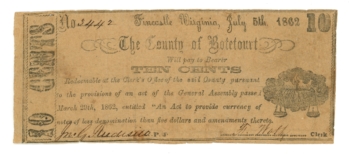 No 3442 Fincastle Virginia, July 5th, 1862 10
The County of Botetourt
Will pay to Bearer
TEN CENTS
Redeemable at the Clerk's Office of the said County pursuant
to the provisions of an act of the General Assembly passed
March 29th, 1862, entitled "An Act to provide currency of
notes of less denomination than five dollars and amendments thereto.
Clerk
10 CENTS